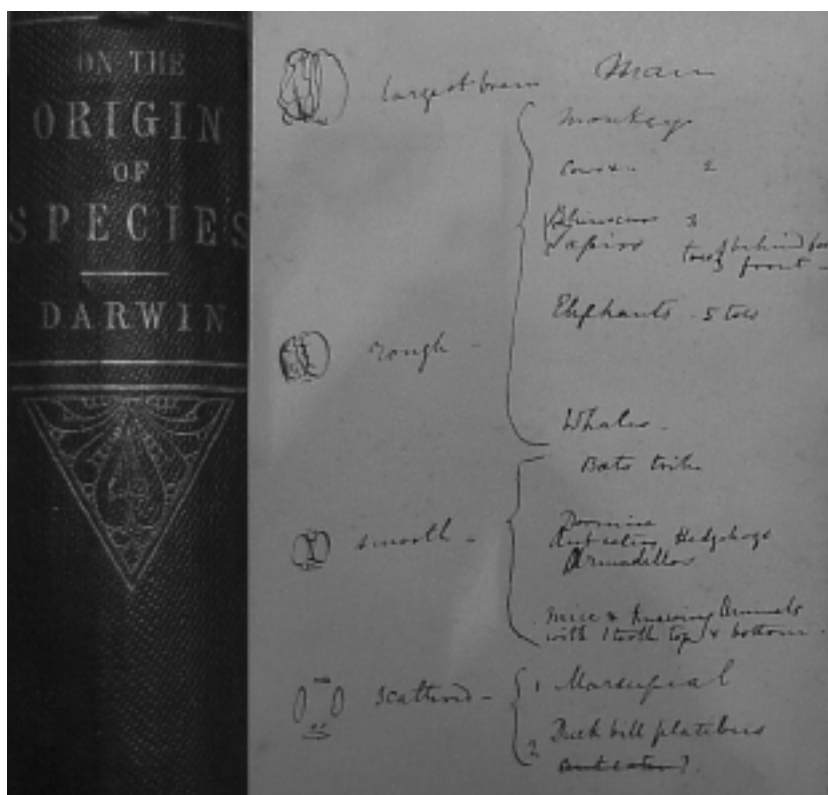 ON THE
ORIGIN
OF
SPECIES
DARWIN
largest brain Man
monkeys
Cows 2
Tapirs toes behind
front -
Elephants - 5 toes
rough -
Whales -
Bats tribe
smooth -
Dormice
Ant eating Hedgehogs
Armadillos
mice & Knawing Animals
with 1 tooth top & bottom.
scattered - 1 Marsupial
2 Duck bill platibus